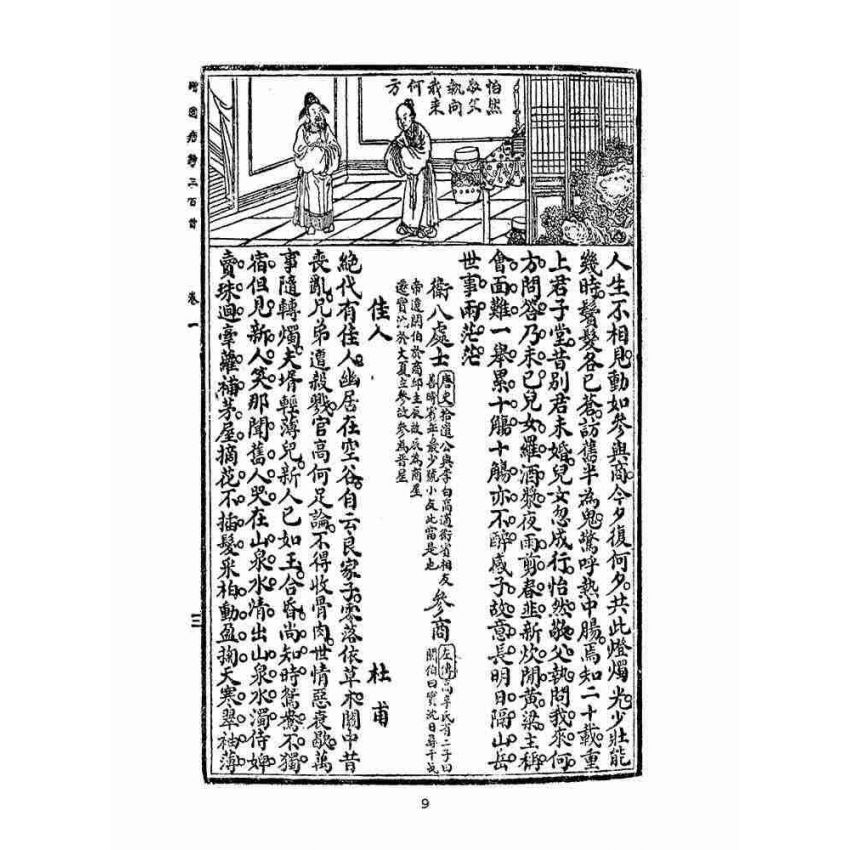 怡然敬父執問我來何方
人生不相見。動如參與商。今夕復何夕。共此燈燭光。少壯能
幾時。鬢髮各已蒼。訪舊半為鬼。驚呼熱中腸。焉知二十載。重
上君子堂。昔別君未婚。兒女忽成行。怡然敬父執。問我來何
方。問答乃未已。兒女羅酒漿。夜雨剪春韭。新炊間黃粱。主稱
會面難。一舉累十觴。十觴亦不醉。感子故意長。明日隔山岳。
世事兩茫茫。
衛八處士 唐史拾遺公與李白高適衛賓相友
善時賓年最少號小友此當是也 參商 左傳高辛氏有二子曰
閼伯曰實沈日尋干戈
帝遷閼伯於商邱主辰故辰為商星
遷實沈於大夏主參故參為晉星
佳人 杜甫
絕代有佳人。幽居在空谷。自云良家子。零落依草木。關中昔
喪亂。兄弟遭殺戮。官高何足論。不得收骨肉。世情惡衰歇。萬
事隨轉燭。夫壻輕薄兒。新人已如玉。合昏尚知時。鴛鴦不獨
宿。但見新人笑。那聞舊人哭。在山泉水清。出山泉水濁。侍婢
賣珠迴。牽蘿補茅屋。摘花不插髮。采柏動盈掬。天寒翠袖薄。
圖唐詩三百首 卷一 三
9